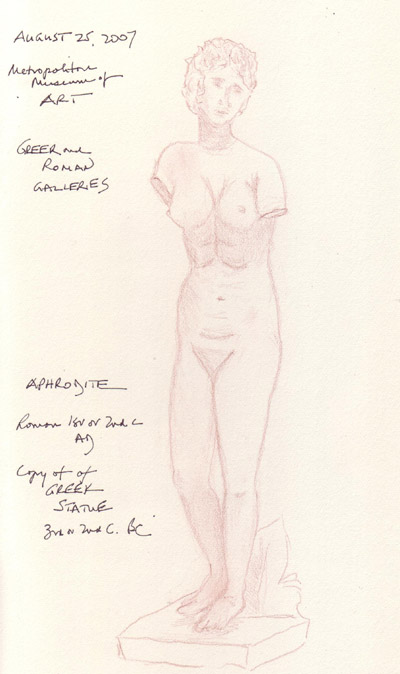 AUGUST 25, 2007
Metropolitan
Museum of
ART
GREEK and
ROMAN
GALLERIES
APHRODITE
Roman 1st or 2nd C
AD
Copy of of
GREEK
STATUE
3rd or 2nd C. BC